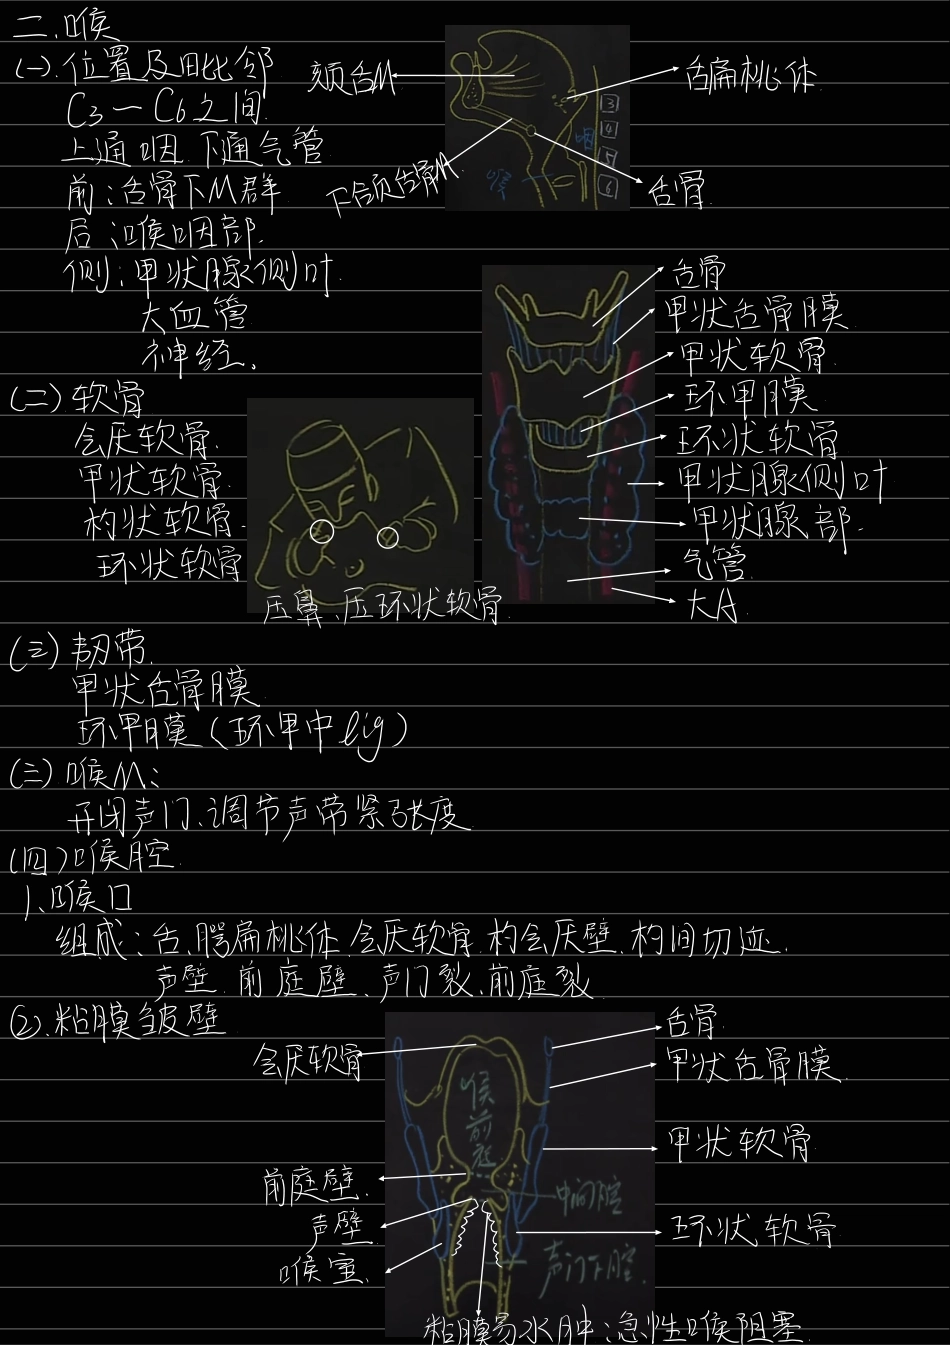 二、喉
(一).位置及毗邻
C3一C6之间
上通咽.下通气管
前:舌骨下M群
后:喉咽部.
侧:甲状腺侧叶
大血管
神经.
颏舌M
舌扁桃体
下颌舌骨M.
舌骨
3
4
5
6
咽
喉
(二)软骨
会厌软骨.
甲状软骨.
杓状软骨.
环状软骨
压鼻、压环状软骨
舌骨
甲状舌骨膜
甲状软骨
环甲膜
环状软骨
甲状腺侧叶
甲状腺部.
气管
大A.
(三)韧带.
甲状舌骨膜
环甲膜(环甲中lig)
(三)喉M:
开闭声门、调节声带紧张度
(四)喉腔.
1、喉口
组成:舌、腭扁桃体.会厌软骨.杓会厌壁.杓间切迹.
声壁.前庭壁、声门裂、前庭裂
②.粘膜皱壁
会厌软骨
前庭壁.
声壁.
喉室.
舌骨.
甲状舌骨膜.
甲状软骨
环状软骨
喉前庭
中间腔
声门下腔
粘膜易水肿:急性喉阻塞.